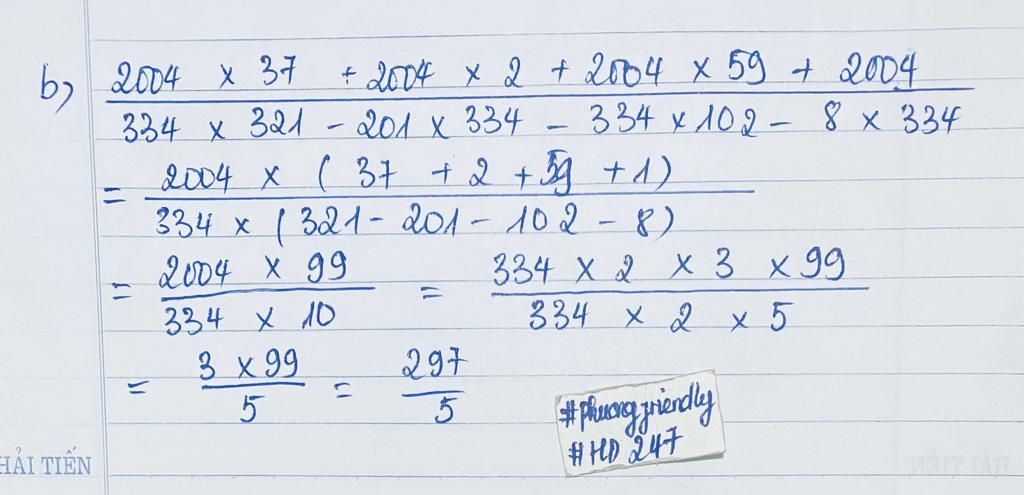 b) \frac{2004 × 37 + 2004 × 2 + 2004 × 59 + 2004}{334 × 321 - 201 × 334 - 334 × 102 - 8 × 334}
= \frac{2004 × ( 37 + 2 + 59 + 1 )}{334 × ( 321 - 201 - 102 - 8 )}
= \frac{2004 × 99}{334 × 10} = \frac{334 × 2 × 3 × 99}{334 × 2 × 5}
= \frac{3 × 99}{5} = \frac{297}{5}
#phuongfriendly
#HD 247
HẢI TIẾN